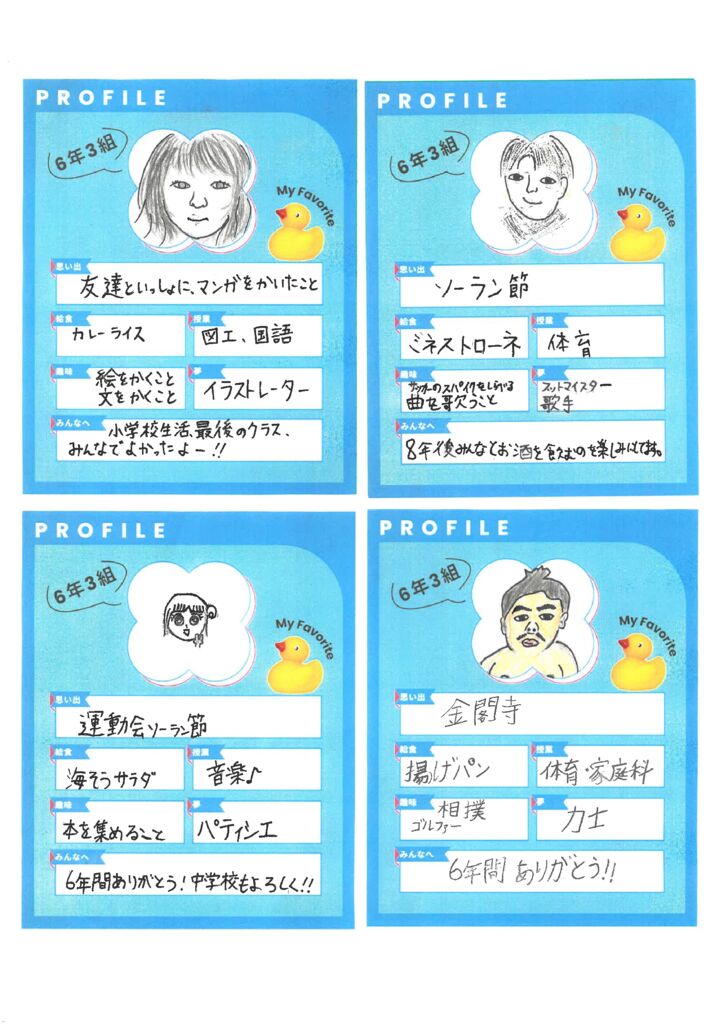 PROFILE
6年3組
My Favorite
思い出
友達といっしょに、マンガをかいたこと
給食
カレーライス
授業
図工、国語
趣味
絵をかくこと
文をかくこと
夢
イラストレーター
みんなへ
小学校生活、最後のクラス、
みんなでよかったよー!!
PROFILE
6年3組
My Favorite
思い出
ソーラン節
給食
ミネストローネ
授業
体育
趣味
サッカーのスパイクをしらべる
曲を歌うこと
夢
フットマイスター
歌手
みんなへ
8年後みんなとお酒を飲むのを楽しみにしてます。
PROFILE
6年3組
My Favorite
思い出
運動会ソーラン節
給食
海そうサラダ
授業
音楽♪
趣味
本を集めること
夢
パティシエ
みんなへ
6年間ありがとう!中学校もよろしく!!
PROFILE
6年3組
My Favorite
思い出
金閣寺
給食
揚げパン
授業
体育・家庭科
趣味
相撲
ゴルファー
夢
力士
みんなへ
6年間ありがとう!!